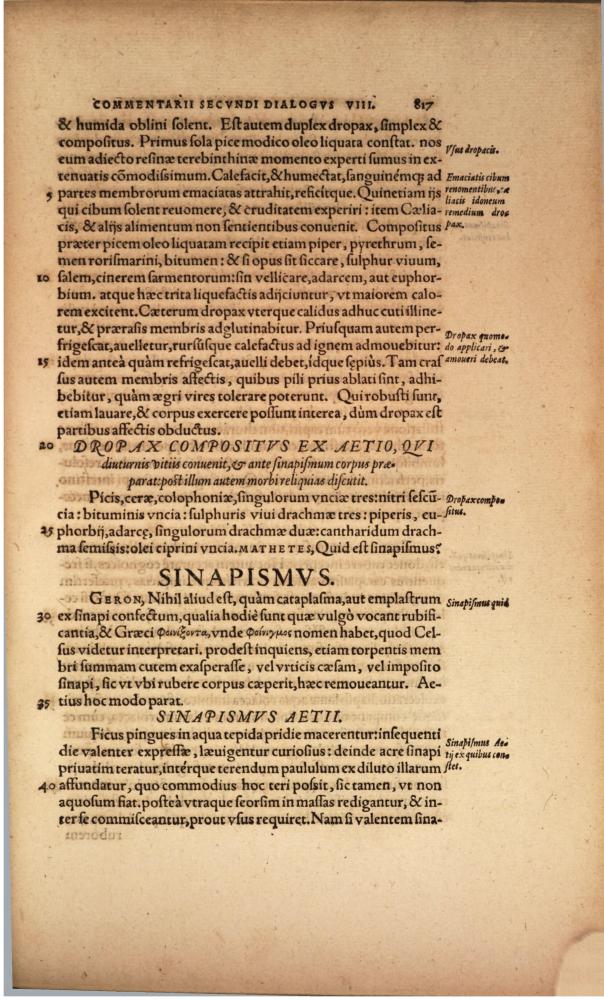 COMMENTARII SECVNDI DIALOGVS VIII. 817
& humida oblini solent. Est autem duplex dropax, simplex &
compositus. Primus sola pice modico oleo liquata constat. nos
Vsus dropacis.
eum adiecto resinæ terebinthinæ momento experti sumus in ex-
tenuatis cōmodissimum. Calefacit, & humectat, sanguinémq; ad
5 partes membrorum emaciatas attrahit, reficitque. Quinetiam ijs
qui cibum solent reuomere, & cruditatem experiri: item Cœlia-
cis, & alijs alimentum non sentientibus conuenit. Compositus
Emaciatis cibum
reuomentibus, cæ
liacis idoneum
remedium dro
pax.
præter picem oleo liquatam recipit etiam piper, pyrethrum, se-
men rorismarini, bitumen: & si opus sit siccare, sulphur viuum,
10 salem, cinerem sarmentorum: sin vellicare, adarcem, aut euphor-
bium. atque hæc trita liquefactis adijciuntur, vt maiorem calo-
rem excitent. Cæterum dropax vterque calidus adhuc cuti illine-
tur, & prærasis membris adglutinabitur. Priusquam autem per-
frigescat, auelletur, rursúsque calefactus ad ignem admouebitur:
15 idem anteà quàm refrigescat, auelli debet, idque sępiùs. Tam cras
Dropax quomo-
do applicari, &
amoueri debeat.
sus autem membris affectis, quibus pili prius ablati sint, adhi-
bebitur, quàm ægri vires tolerare poterunt. Qui robusti sunt,
etiam lauare, & corpus exercere possunt interea, dùm dropax est
partibus affectis obductus.
20 DROPAX COMPOSITVS EX AETIO, QVI
diuturnis vitiis conuenit, & ante sinapismum corpus præ-
parat: post illum autem morbi reliquias discutit.
Picis, ceræ, colophoniæ, singulorum vnciæ tres: nitri sescū-
cia: bituminis vncia: sulphuris viui drachmæ tres: piperis, eu-
Dropax compo-
situs.
25 phorbij, adarcę, singulorum drachmæ duæ: cantharidum drach-
ma semissis: olei ciprini vncia. MATHETES, Quid est sinapismus?
SINAPISMVS.
GERON, Nihil aliud est, quàm cataplasma, aut emplastrum
Sinapismus quid
30 ex sinapi confectum, qualia hodiè sunt quæ vulgò vocant rubifi-
cantia, & Græci φοινίξοντα, vnde φοίνιγμος nomen habet, quod Cel-
sus videtur interpretari. prodest inquiens, etiam torpentis mem
bri summam cutem exasperasse, vel vrticis cæsam, vel imposito
sinapi, sic vt vbi rubere corpus cæperit, hæc remoueantur. Ae-
35 tius hoc modo parat.
SINAPISMVS AETII.
Ficus pingues in aqua tepida pridie macerentur: insequenti
die valenter expressæ, læuigentur curiosius: deinde acre sinapi
priuatim teratur, intérque terendum paululum ex diluto illarum
Sinapismus Ae-
tij ex quibus con-
stet.
40 affundatur, quo commodius hoc teri possit, sic tamen, vt non
aquosum fiat. posteà vtraque seorsim in massas redigantur, & in-
ter se commisceantur, prout vsus requiret. Nam si valentem sina-